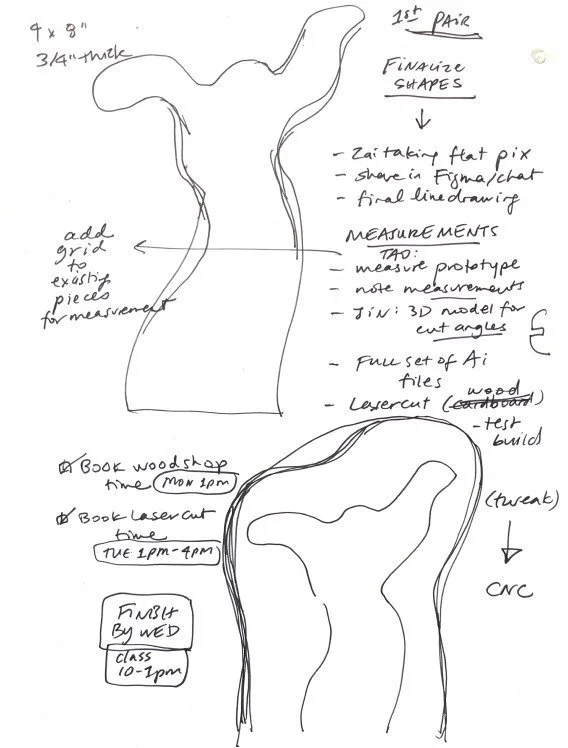 4 x 8"
3/4" thick
1st PAIR
FINALIZE
SHAPES
- Zai taking flat pix
- share in Figma/chat
- final line drawing
MEASUREMENTS
TAO:
- measure prototype
- note measurements
- JIN: 3D model for
cut angles
- Full set of Ai
files
wood
- Lasercut (cardboard)
- test
build
add
grid
to
existing
pieces
for measurement
Book woodshop
time MON 1pm
Book lasercut
time
TUE 1PM-4PM
(tweak)
CNC
FINISH
By WED
class
10-1pm